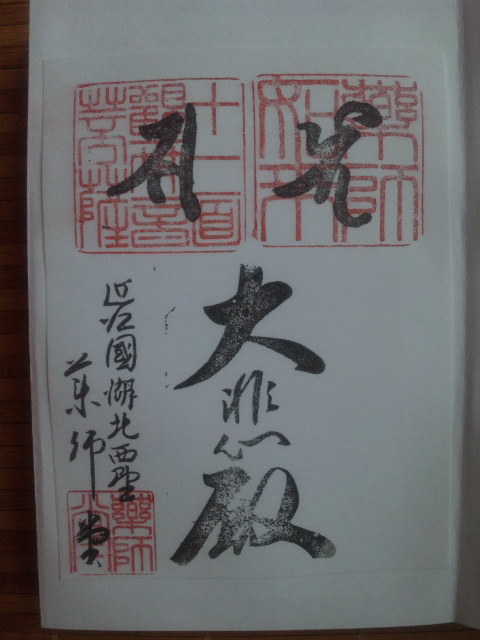 藥師
如来
十一面
觀世音
菩薩
大悲殿
近江國湖北西野
薬師堂
藥師